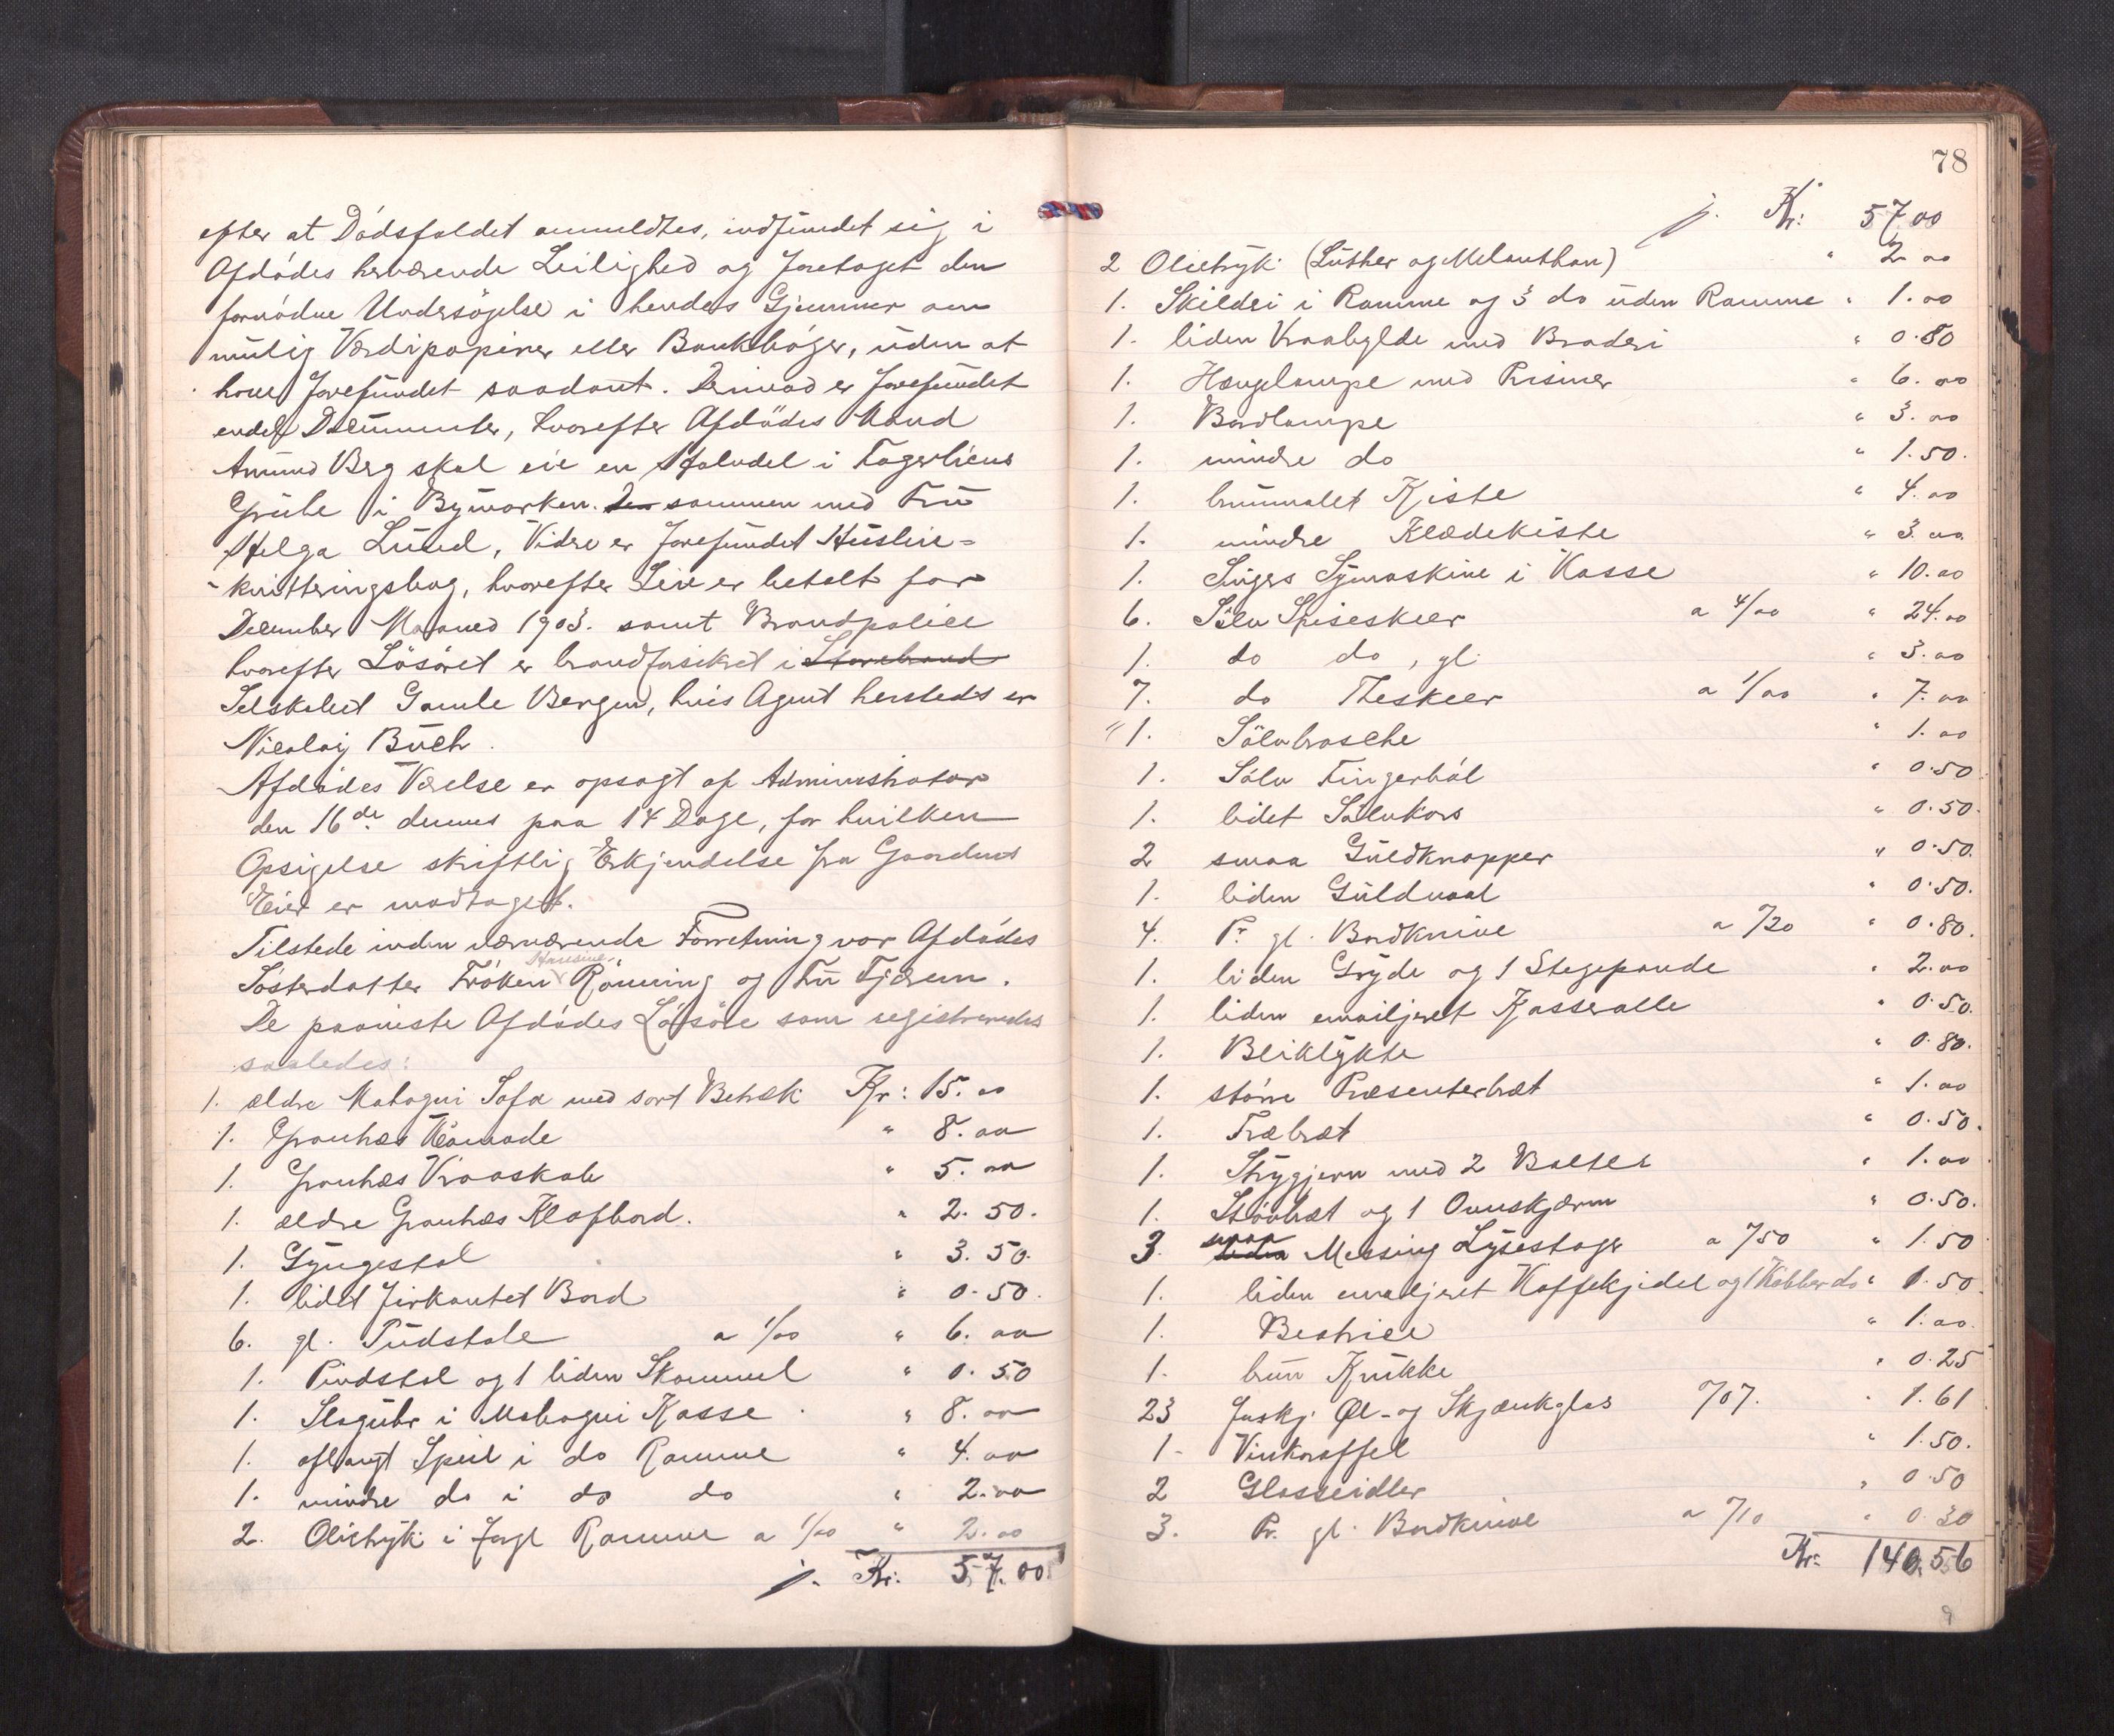 efter at Dødsfaldet anmeldtes, indfundet sig i
Afdødes herværende Leilighed og foretaget den
fornødne Undersøgelse i hendes Gjemmer om
mulig Værdipapirer eller Bankbøger, uden at
have forefundet saadant. Derimod er forefundet
endel Documenter, hvorefter Afdødes Mand
Amund Berg skal eie en Halvdel i Fagerliens
Grube i Bymarken. Den sammen med Fru
Helga Lund, Videre er forefundet Husleie=
-kvitteringsbog, hvorefter Leie er betalt for
December Maaned 1903. samt Brandpolice
hvorefter Løsøret er brandforsikret i Storebrand
Selskabet Gamle Bergen, hvis Agent hersteds er
Nicolay Buch.
Afdødes Værelse er opsagt af Administrator
den 16de dennes paa 14 Dage, for hvilken
Opsigelse skriftlig Erkjendelse fra Gaardens
Eier er modtaget.
Tilstede under nærværende Forretning var Afdødes
Hansine
Søsterdatter Frøken Rønning og Fru Fjærem.
De paaviste Afdødes Løsøre som registreredes
saaledes:
1. ældre Mahogni Sofa med sort Betræk Kr: 15.00
1. Granhæs Komode " 8.00
1. Granhæs Vraaskab " 5.00
1. ældre Granhæs Klafbord. " 2.50.
1. Gyngestol " 3.50.
1. lidet firkantet Bord " 0.50.
6. gl. Pudstole a 1/00 " 6.00
1. Pindstol og 1 liden Skammel " 0.50
1. Slaguhr i Mahogni Kasse " 8.00
1. aflangt Speil i do Ramme " 4.00
1. mindre do i do do " 2.00
2. Olietryk i forgl Ramme a 1/00 " 2.00
j. Kr: 57.00
78
j. Kr: 57.00
2 Olietryk (Luther og Melanthon) " 2.00
1. Skilderi i Ramme og 3 do uden Ramme " 1.00
1. liden Vraahylde med Broderi " 0.80
1. Hængelampe med Prismer " 6.00
1. Bordlampe " 3.00
1. mindre do " 1.50.
1. brunmalet Kiste " 4.00
1. mindre Klædekiste " 3.00
1. Singers Symaskine i Kasse " 10.00
6. Sølv Spiseskeer a 4/00 " 24.00
1. do do, gl. " 3.00
7. do Theskeer a 1/00 " 7.00
" 1. Sølvbrosche " 1.00
1. Sølv Fingerbøl " 0.50
1. lidet Sølvkors " 0.50.
2 smaa Guldknapper " 0.50.
1. liden Guldnaal " 0.50.
4. Pr gl. Bordknive a "/20 " 0.80.
1. liden Gryde og 1 Stegepande " 2.00
1. liden emailjeret Kasserolle " 0.50.
1. Bliklygte " 0.80.
1. større Præsenterbræt " 1.00
1. Træbræt " 0.50.
1. Strygjern med 2 Bolter " 1.00
1. Støvbræt og 1 Ovnskjærm " 0.50.
smaa
3. liden Messing Lysestager a "/50 " 1.50
1. liden emaljeret Kaffekjedel og 1 Kobber do " 1.50.
1. Beatrice " 1.00.
1. brun Krukke " 0.25
23 forskj. Øl- og Skjænkglas "/07. " 1.61
1- Vinkaraffel " 1.50.
2 Glasseidler " 0.50
3. Pr. gl. Bordknive a "/10 " 0.30
Kr: 140.56